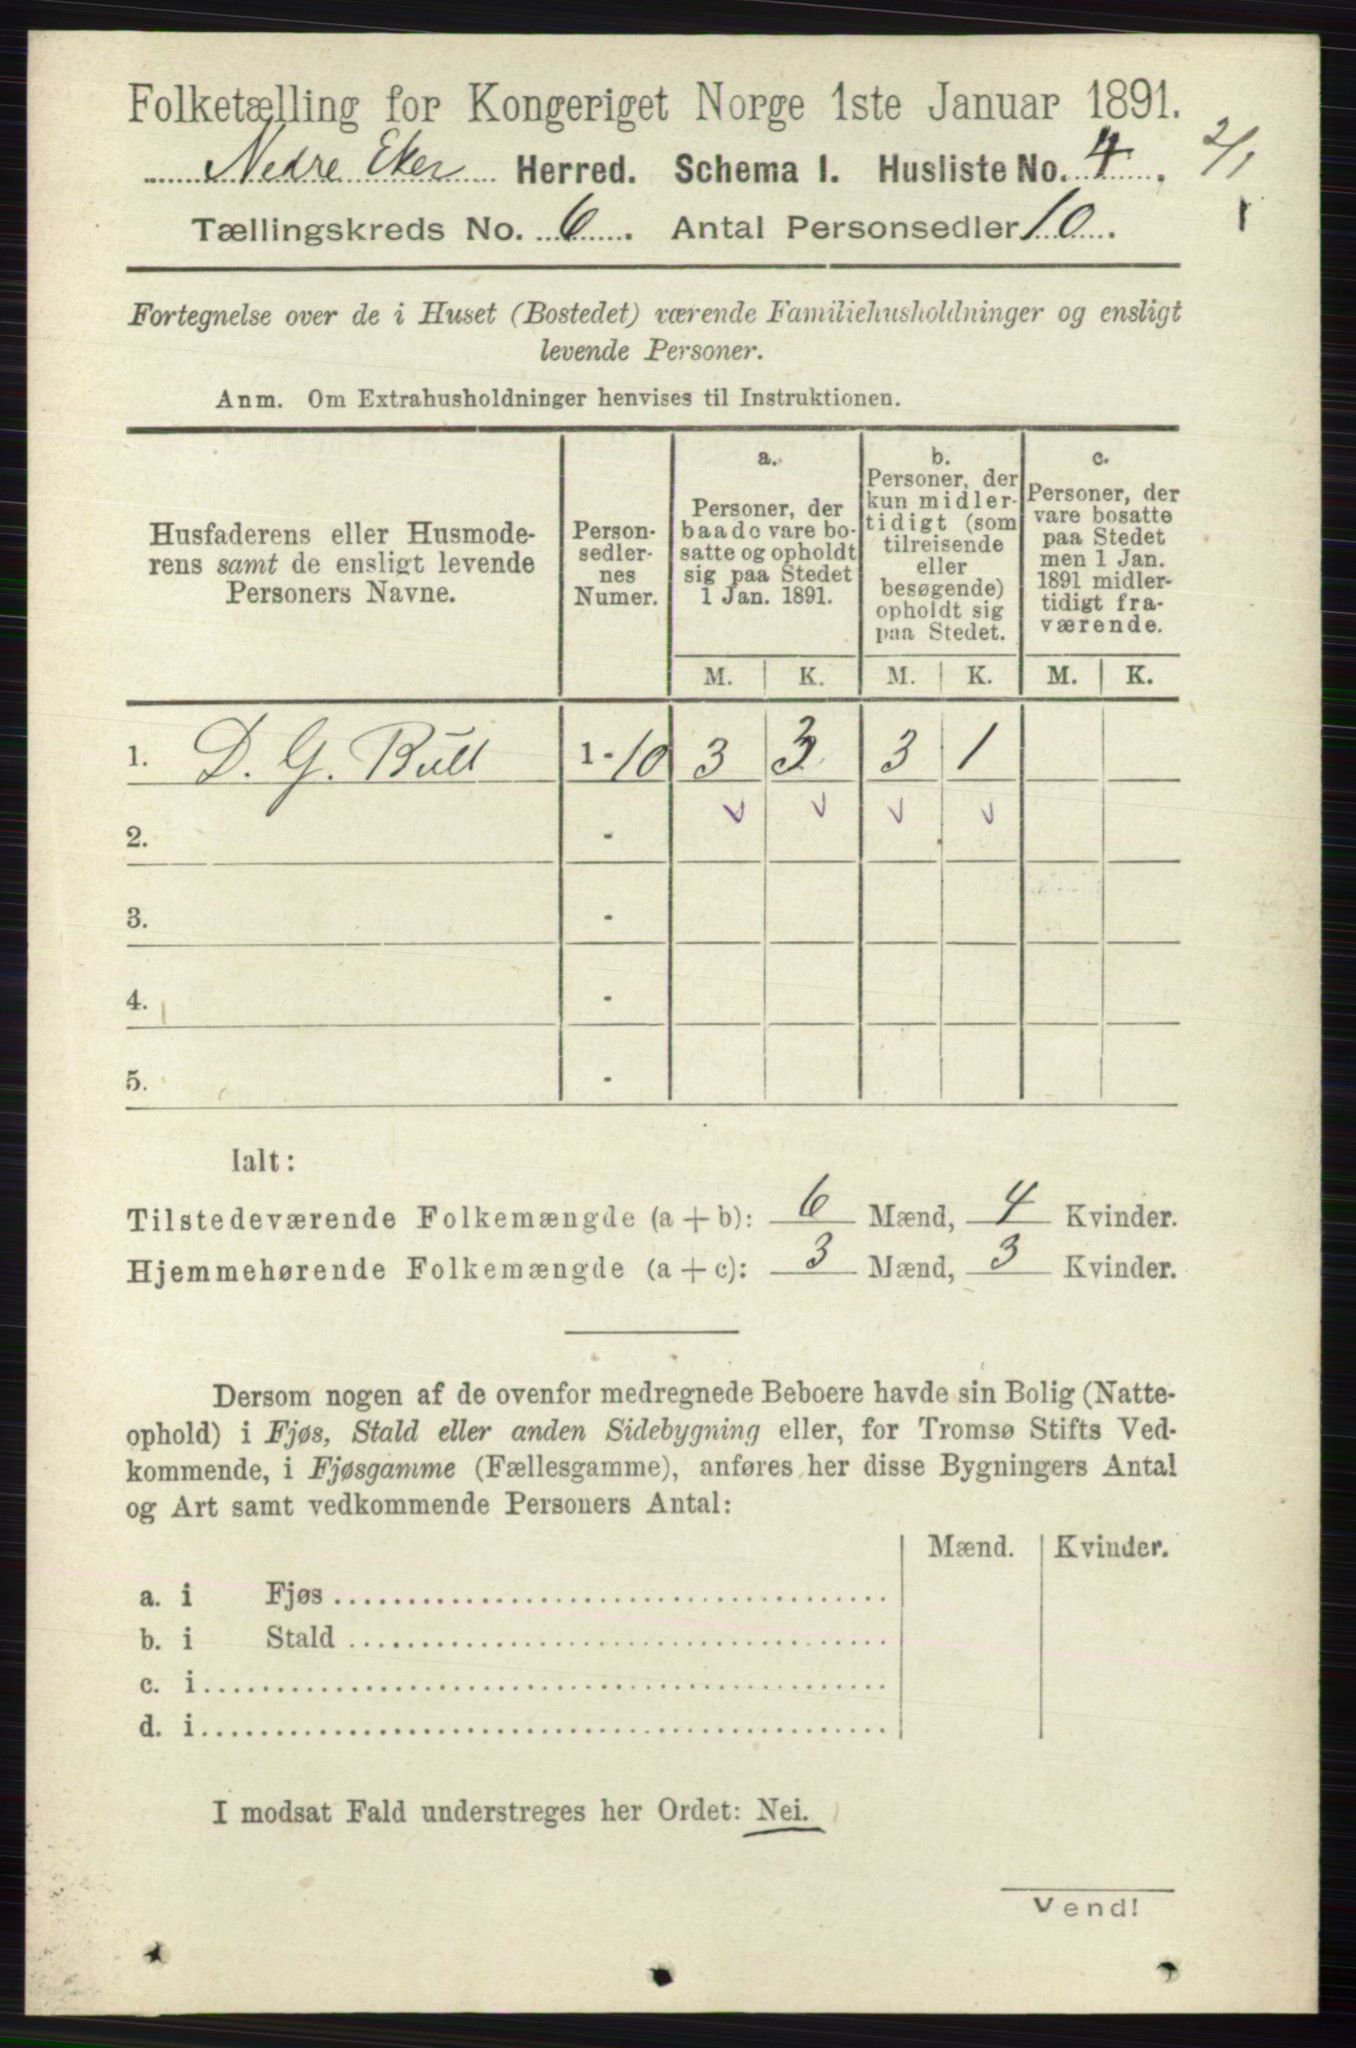 Folketælling for Kongeriget Norge 1ste Januar 1891.
Nedre Eker Herred. Schema I. Husliste No. 4. 2/1
Tællingskreds No. 6. Antal Personsedler 10.
Fortegnelse over de i Huset (Bostedet) værende Familiehusholdninger og ensligt
levende Personer.
Anm. Om Extrahusholdninger henvises til Instruktionen.
Husfaderens eller Husmode-
rens samt de ensligt levende
Personers Navne.
Person-
sedler-
nes
Numer.
a.
Personer, der
baade vare bo-
satte og opholdt
sig paa Stedet
1 Jan. 1891.
b.
Personer, der
kun midler-
tidigt (som
tilreisende
eller
besøgende)
opholdt sig
paa Stedet.
c.
Personer, der
vare bosatte
paa Stedet
men 1 Jan.
1891 midler-
tidigt fra-
værende.
M. K. M. K. M. K.
1. D. G. Bull 1-10 3 3 3 1
2. -
3. -
4. -
5. -
Ialt:
Tilstedeværende Folkemængde (a + b): 6 Mænd, 4 Kvinder.
Hjemmehørende Folkemængde (a + c): 3 Mænd, 3 Kvinder.
Dersom nogen af de ovenfor medregnede Beboere havde sin Bolig (Natte-
ophold) i Fjøs, Stald eller anden Sidebygning eller, for Tromsø Stifts Ved-
kommende, i Fjøsgamme (Fællesgamme), anføres her disse Bygningers Antal
og Art samt vedkommende Personers Antal:
Mænd. Kvinder.
a. i Fjøs
b. i Stald
c. i
d. i
I modsat Fald understreges her Ordet: Nei.
Vend!